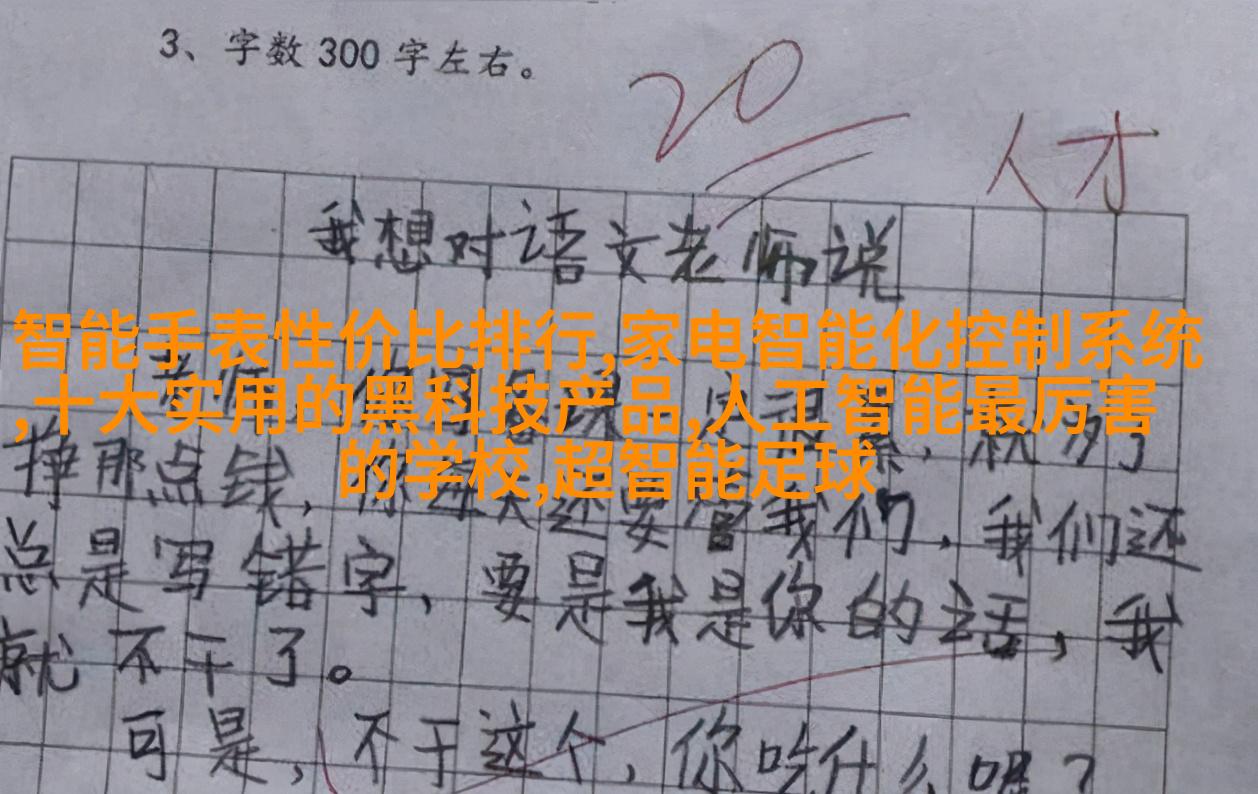 3、字数300字左右。
20
人才
我想对语文老师说
智能手表性价比排行,家电智能化控制系统
,十大实用的黑科技产品,人工智能最厉害
的学校,超智能足球
挣那点钱,你每天还要管我们,我们还
总是写错字,要是我是你的话,我
就不干了。
可是,不干这个,你吃什么呢?